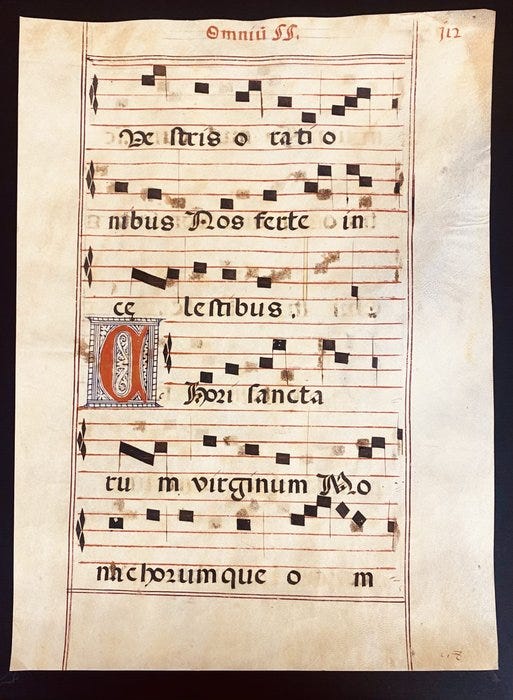 Omniū SS. 112
Ve stris o rati o
nibus Nos ferte in
cę lestibus.
C hori sancta
ru m virginum Mo
nachorumque o m